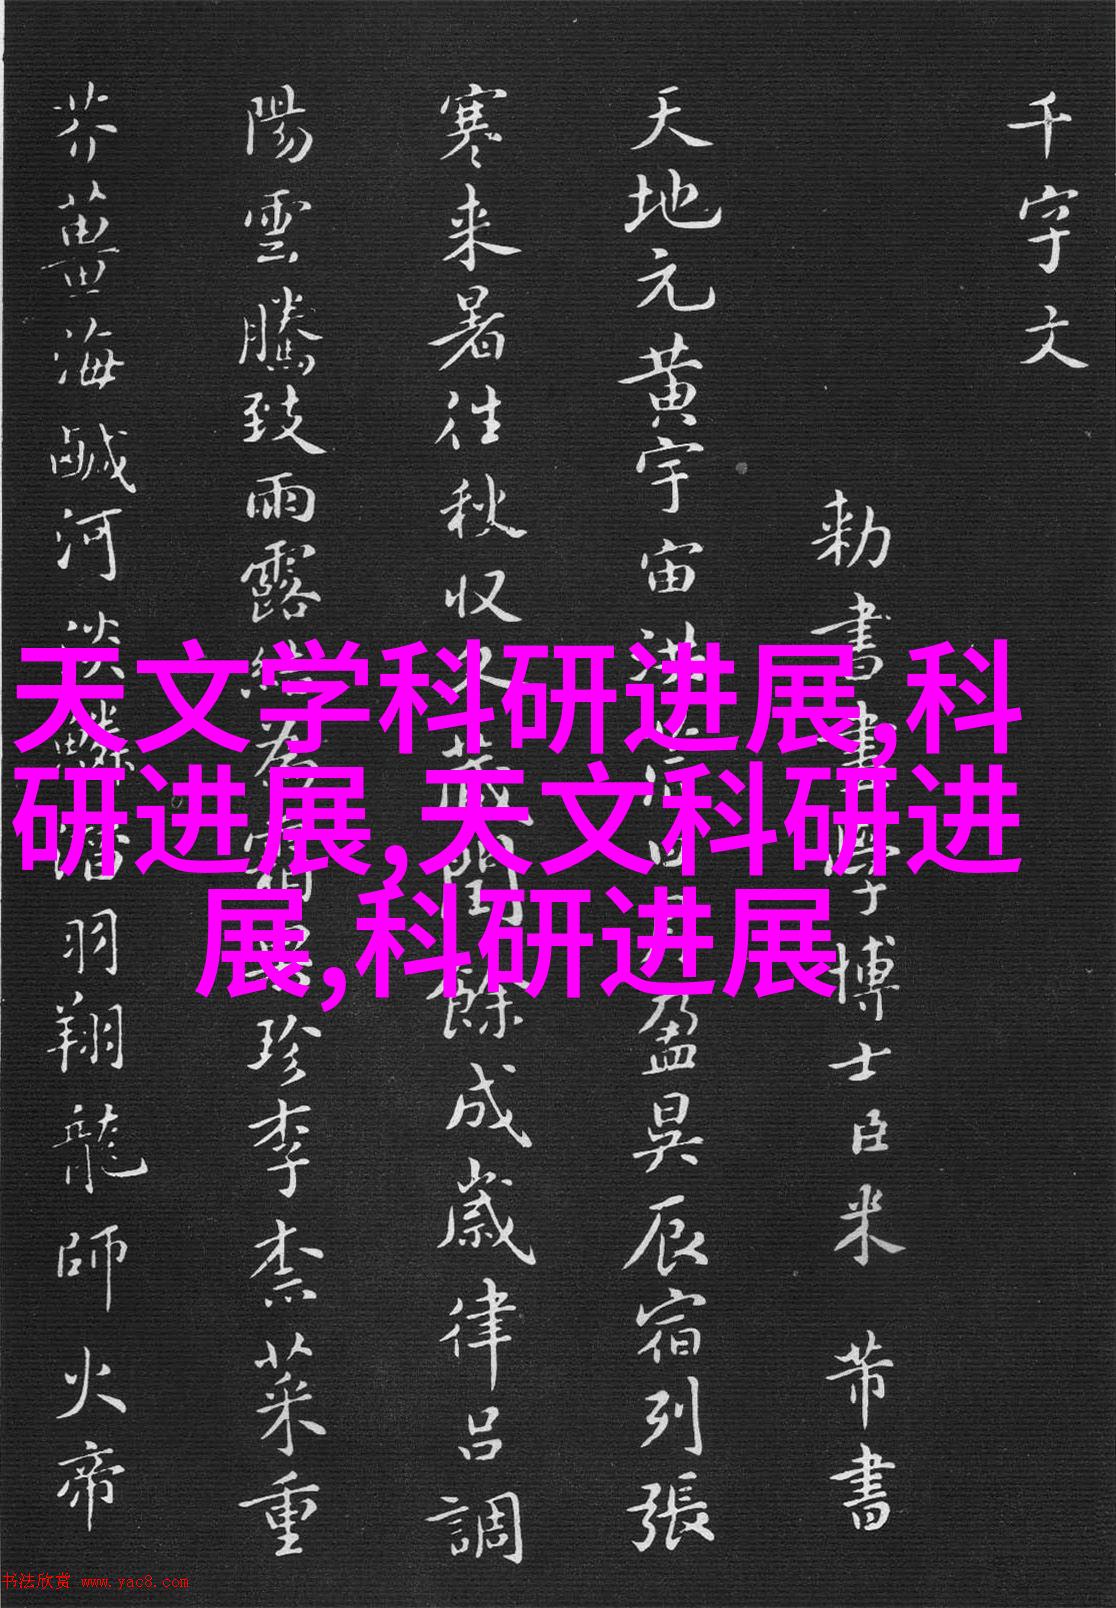 千字文
勅書書學博士臣米芾書
天地元黄宇宙洪荒日月盈昃辰宿列張
寒来暑往秋収冬蔵閏餘成歲律呂調
陽雲騰致雨露結為霜
珍李柰菜重
芥薑海鹹河淡鱗潛羽翔龍師火帝
天文学科研进展,科
研进展,天文科研进
展,科研进展
书法欣赏 www.yac8.com